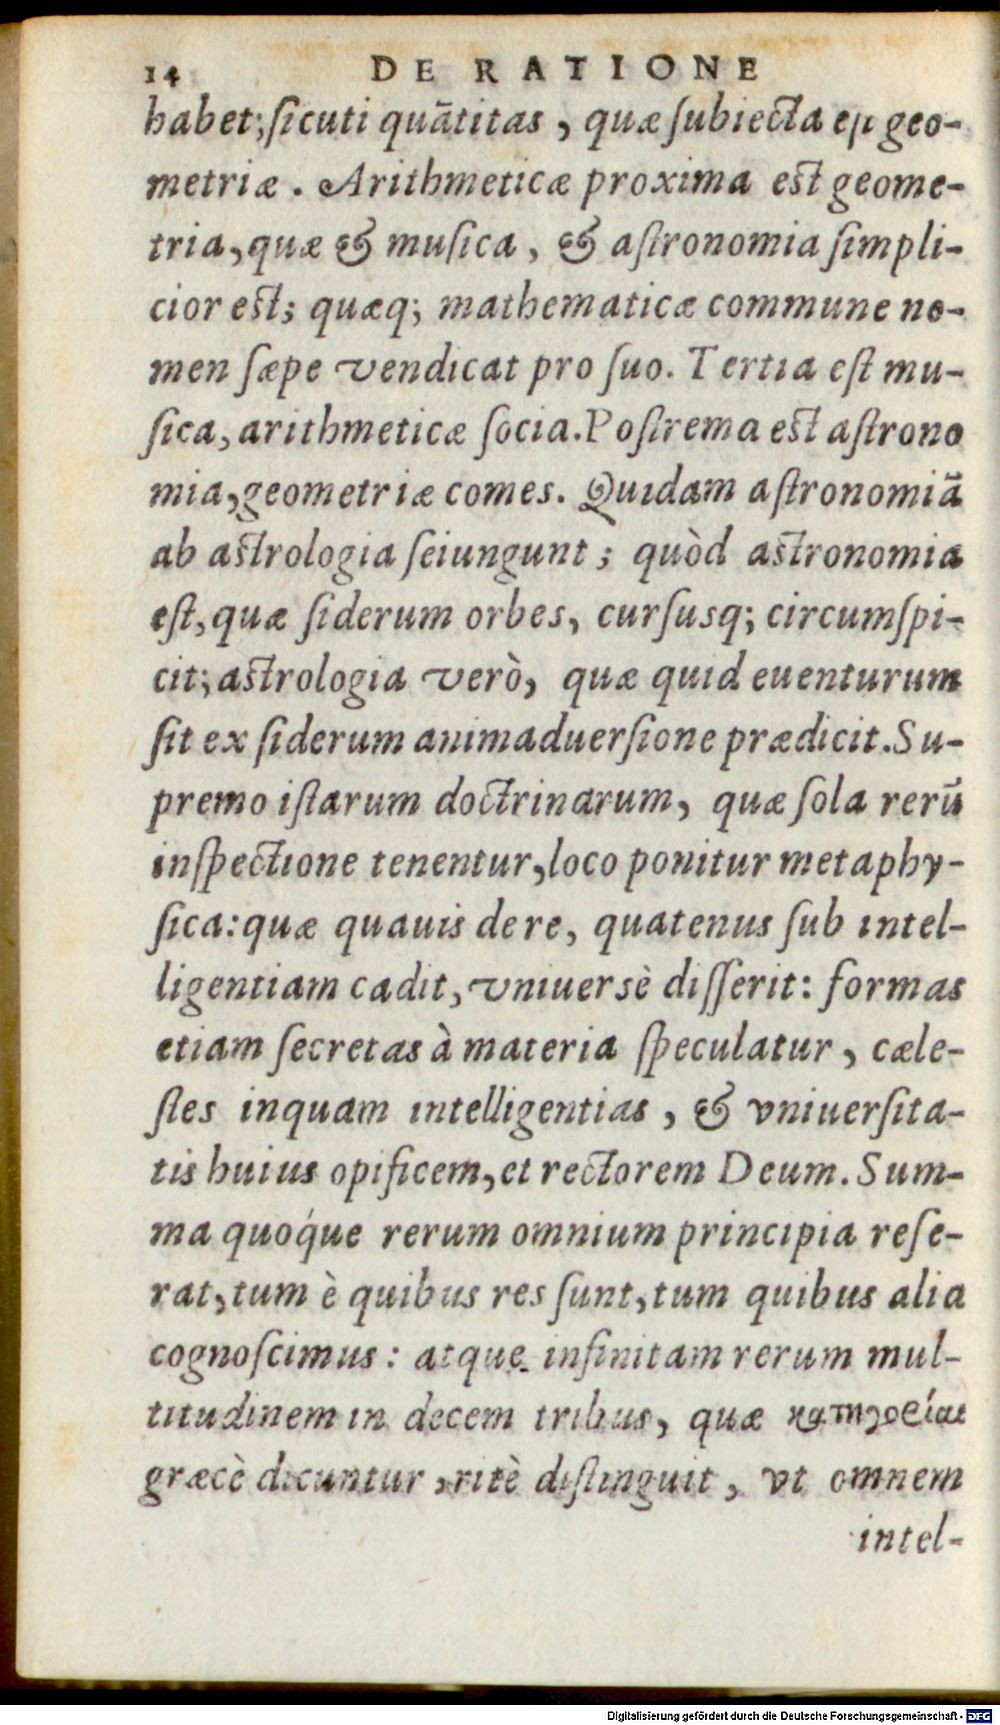 14 DE RATIONE
habet; ſicuti quãtitas, quæ ſubiecta eſt geo-
metriæ. Arithmeticæ proxima est geome-
tria, quæ & muſica, & aſtronomia ſimpli-
cior est; quæq; mathematicæ commune no-
men ſæpe vendicat pro ſuo. Tertia eſt mu-
ſica, arithmeticæ ſocia. Poſtrema est aſtrono
mia, geometriæ comes. Quidam aſtronomiã
ab astrologia ſeiungunt; quòd astronomia
eſt, quæ ſiderum orbes, curſusq; circumſpi-
cit; astrologia verò, quæ quid euenturum
ſit ex ſiderum animaduerſione prædicit. Su-
premo iſtarum doctrinarum, quæ ſola rerũ
inſpectione tenentur, loco ponitur metaphy-
ſica: quæ quauis de re, quatenus ſub intel-
ligentiam cadit, vniuersè diſſerit: formas
etiam ſecretas à materia ſpeculatur, cæle-
ſtes inquam intelligentias, & vniuerſita-
tis huius opificem, et rectorem Deum. Sum-
ma quoq́ue rerum omnium principia reſe-
rat, tum è quibus res ſunt, tum quibus alia
cognoſcimus: atque infinitam rerum mul-
titudinem in decem tribus, quæ κατηγορίαι
græcè dicuntur, ritè diſtinguit, vt omnem
intel-
Digitalisierung gefördert durch die Deutsche Forschungsgemeinschaft - DFG